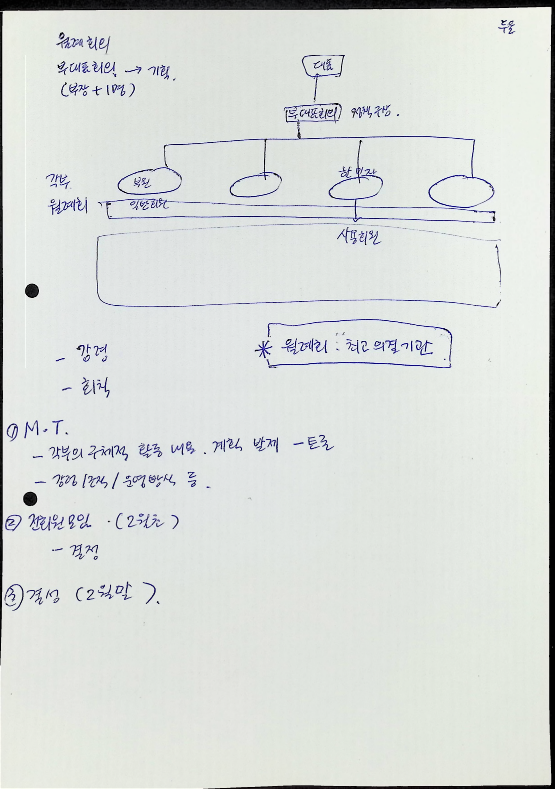 두울
월례회의
부대표회의 → 기획.
(부장 + 1명)
대표
부대표회의
각부
부원
활동자
월례회
일반회원
회원
* 월례회 : 최고의결기관
- 강령
- 회칙
① M.T.
- 각부의 구체적 활동 내용. 계획 발제 - 토론
- 강령/조직/운영방식 등.
② 전회원모임 · (2월초)
- 결정
③ 결성 (2월말).